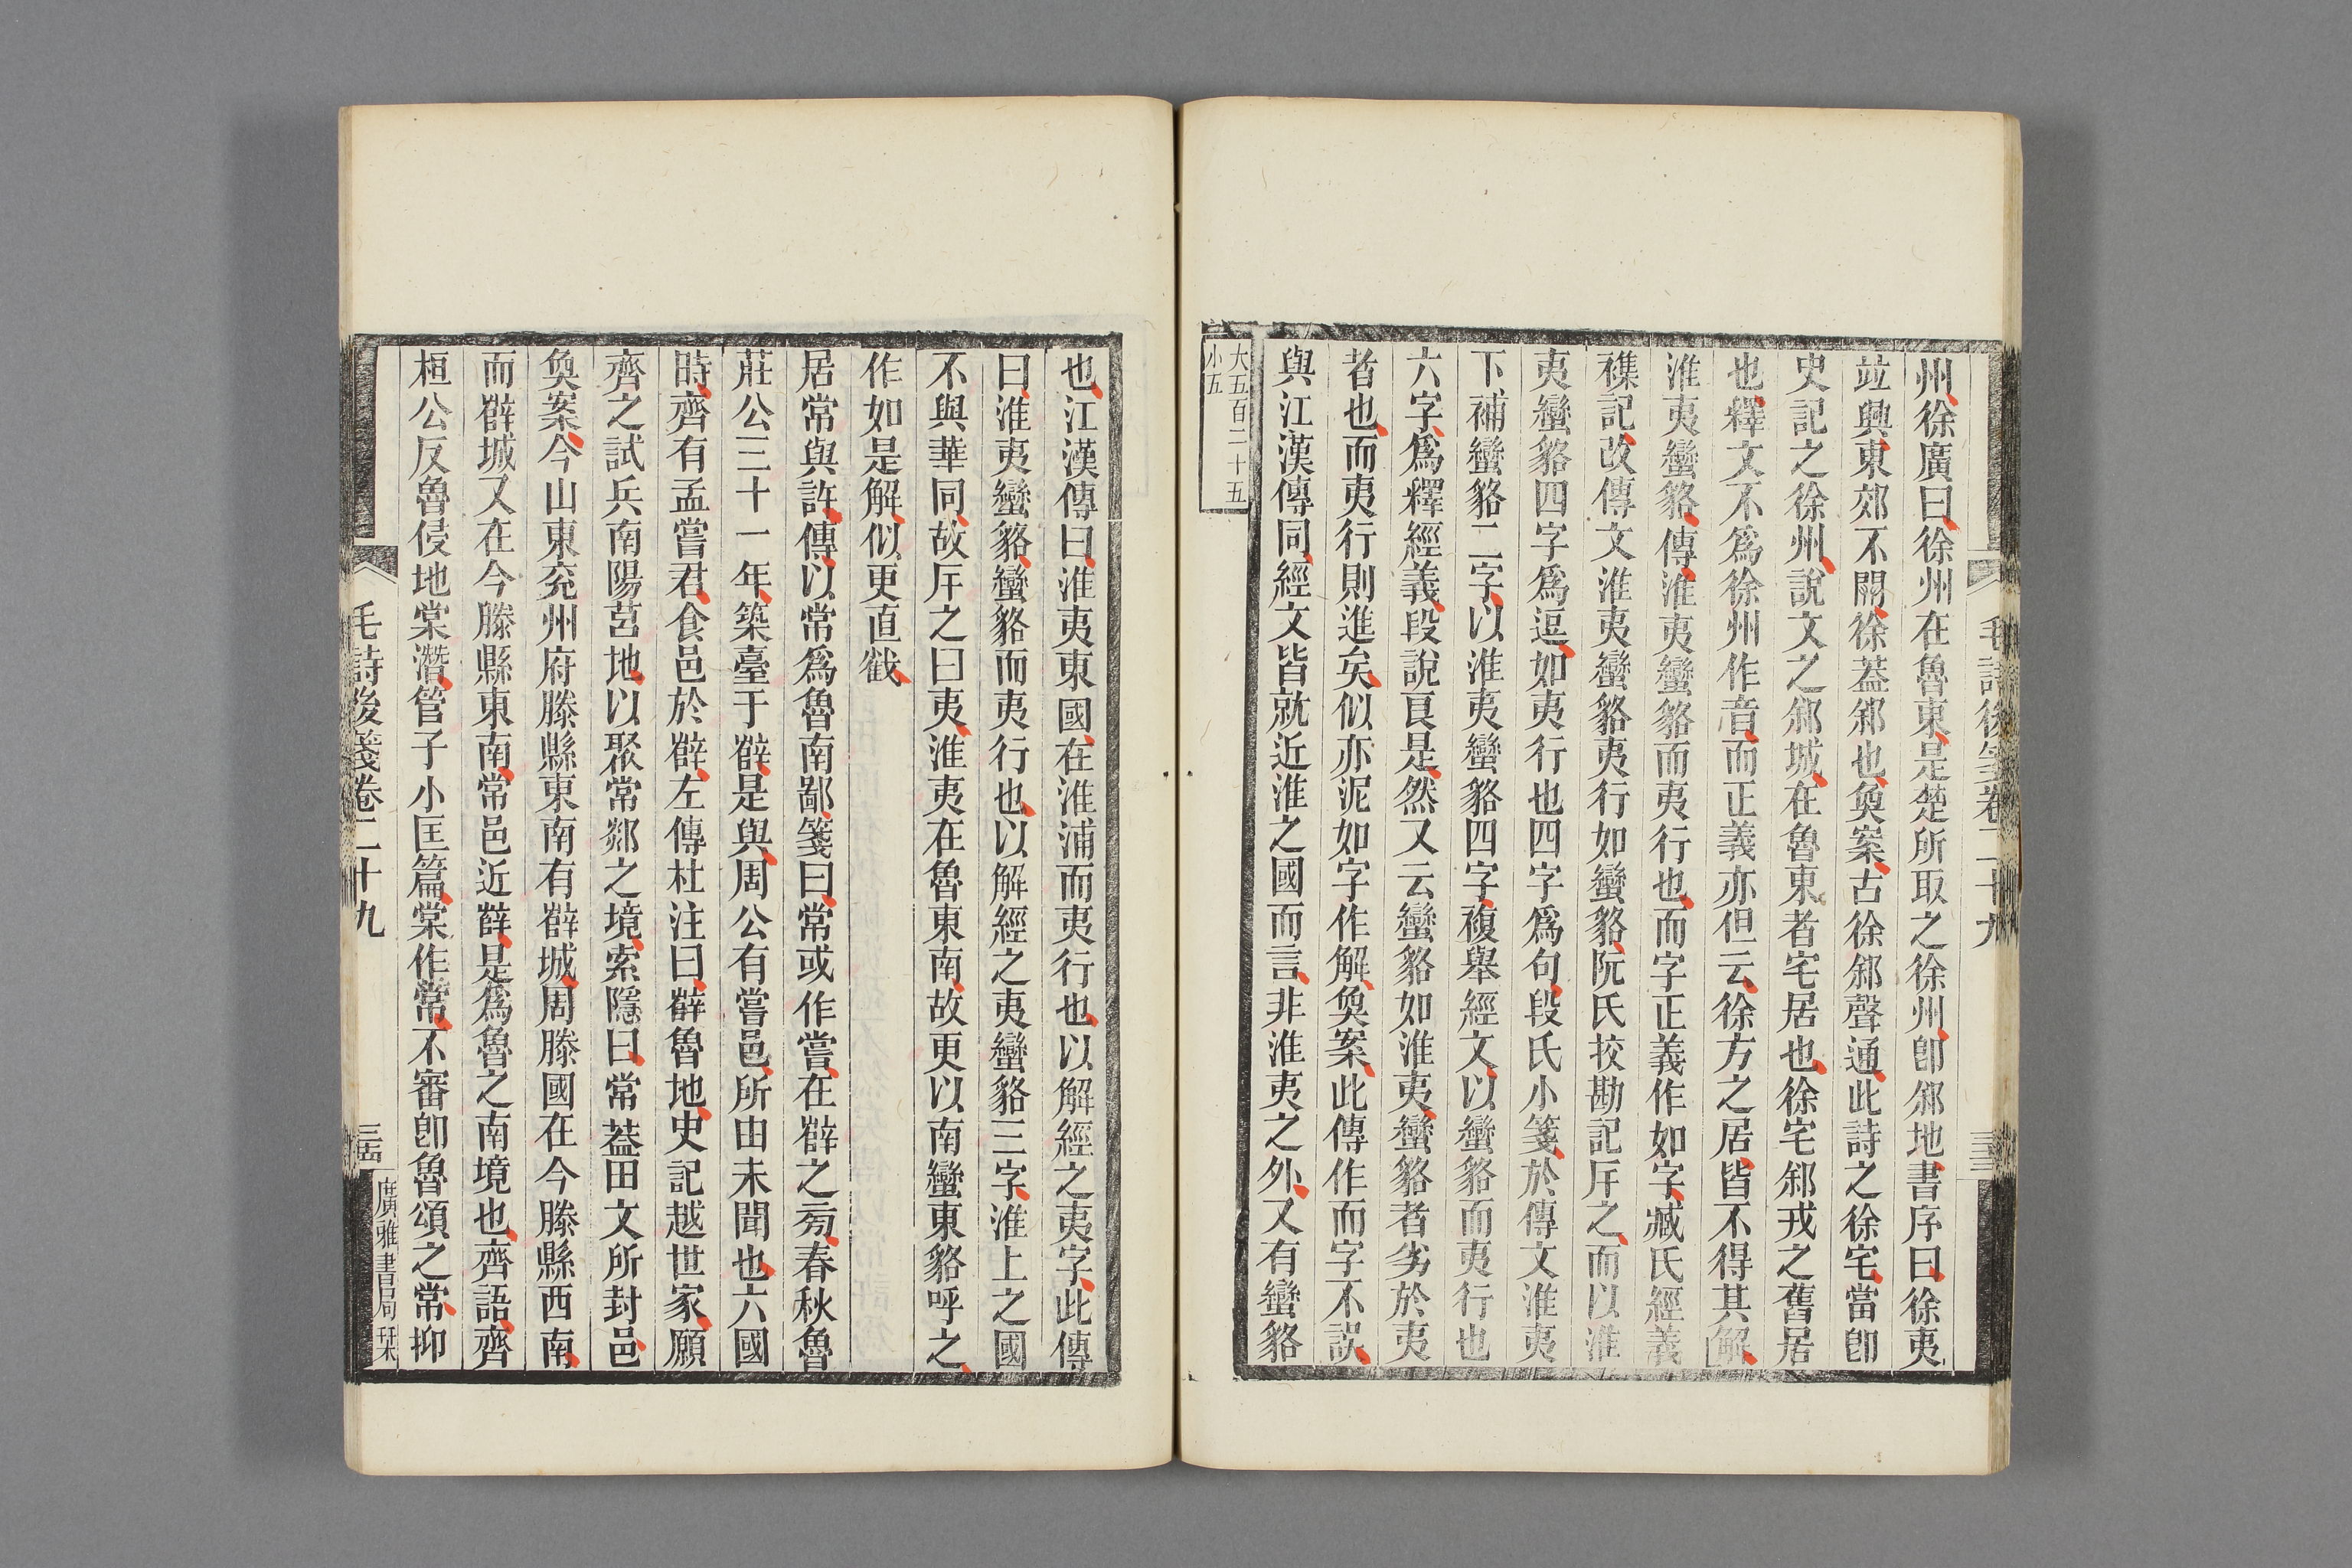 毛詩後箋卷二十九
州徐廣曰徐州在魯東是楚所取之徐州卽䣄地書序曰徐夷
竝興東郊不開徐蓋䣄也奐案古徐䣄聲通此詩之徐宅當卽
史記之徐州說文之䣄城在魯東者宅居也徐宅䣄戎之舊居
也釋文不爲徐州作音而正義亦但云徐方之居皆不得其解
淮夷蠻貉傳淮夷蠻貉而夷行也而字正義作如字臧氏經義
襍記改傳文淮夷蠻貉夷行如蠻貉阮氏挍勘記斥之而以淮
夷蠻貉四字爲逗如夷行也四字爲句段氏小箋於傳文淮夷
下補蠻貉二字以淮夷蠻貉四字複舉經文以蠻貉而夷行也
六字爲釋經義段說良是然又云蠻貉如淮夷蠻貉者劣於夷
者也而夷行則進矣似亦泥如字作解奐案此傳作而字不誤
與江漢傳同經文皆就近淮之國而言非淮夷之外又有蠻貉
大五百二十五
小五
也江漢傳曰淮夷東國在淮浦而夷行也以解經之夷字此傳
曰淮夷蠻貉蠻貉而夷行也以解經之夷蠻貉三字淮上之國
不與華同故斥之曰夷淮夷在魯東南故更以南蠻東貉呼之
作如是解似更直截
居常與許傳以常爲魯南鄙箋曰常或作嘗在薛之㫄春秋魯
莊公三十一年築臺于薛是與周公有嘗邑所由未聞也六國
時齊有孟嘗君食邑於薛左傳杜注曰薛魯地史記越世家願
齊之試兵南陽莒地以聚常郯之境索隱曰常葢田文所封邑
奐案今山東兖州府滕縣東南有薛城周滕國在今滕縣西南
而薛城又在今滕縣東南常邑近薛是爲魯之南境也齊語齊
桓公反魯侵地棠潛管子小匡篇棠作常不審卽魯頌之常抑
毛詩後箋卷二十九
廣雅書局栞